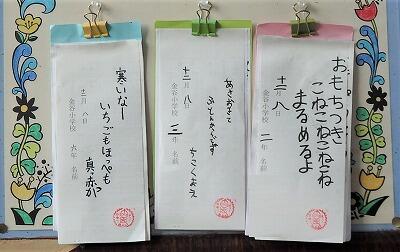 おもちつき
こねこねこねこね
まるめるよ
十二月 八日
金谷小学校 二年 名前
あさおきて
ふとんかんず
ちこくかえ
十二月 八日
金谷小学校 三年 名前
寒いなー
いちごもほっぺも
真赤か
十二月 八日
金谷小学校 六年 名前